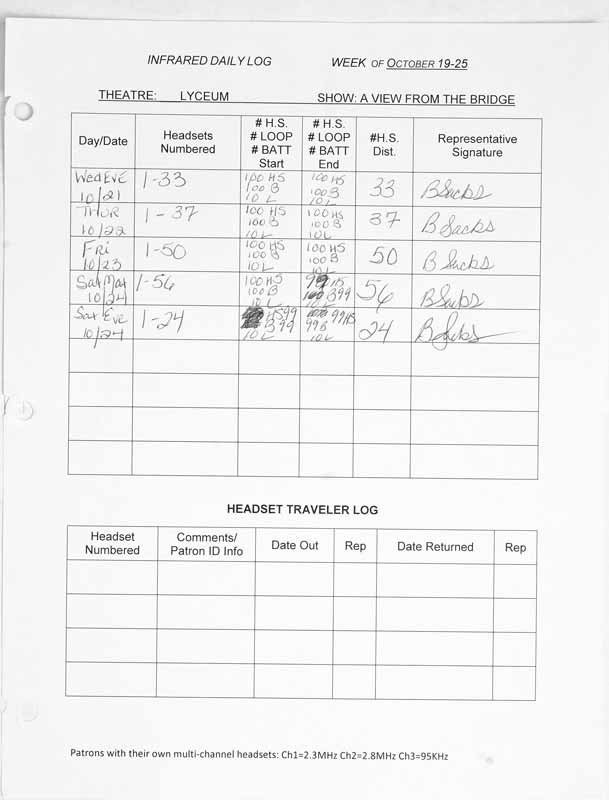 INFRARED DAILY LOG WEEK OF OCTOBER 19-25
THEATRE: LYCEUM SHOW: A VIEW FROM THE BRIDGE
Day/Date Headsets Numbered # H.S. # LOOP # BATT Start # H.S. # LOOP # BATT End #H.S. Dist. Representative Signature
Wed EVE 10/21 1-33 100 HS 100 B 10 L 100 HS 100 B 10 L 33 B Sacks
THUR 10/22 1-37 100 HS 100 B 10 L 100 HS 100 B 10 L 37 B Sacks
FRi 10/23 1-50 100 HS 100 B 10 L 100 HS 100 B 10 L 50 B Sacks
Sat Mat 10/24 1-56 100 HS 100 B 10 L 99 HS B 99 10 L 56 B Sacks
Sat Eve 10/24 1-24 HS 99 B 99 10 L 99 HS 99 B 10 L 24 B Sacks
HEADSET TRAVELER LOG
Headset Numbered Comments/ Patron ID Info Date Out Rep Date Returned Rep
Patrons with their own multi-channel headsets: Ch1=2.3MHz Ch2=2.8MHz Ch3=95KHz